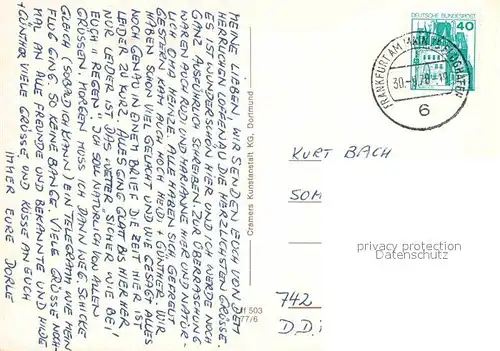 MEINE LIEBEN, WIR SENDEN EUCH VON DEM
HERRLICHEN LOPFENAU DIE HERZLICHSTEN GRÜSSE.
ES IST BESONDERS SCHÖN HIER UND ICH WERDE NOCH
GANZ AUSFÜHRLICH SCHREIBEN. ZUR ÜBERRASCHUNG
WAREN AUCH RUDI UND MARIANNE HIER UND NATÜR-
LICH OMA HEINZE. ALLE HABEN SICH GEFREUT
GESTERN KAM AUCH NOCH HEIDI + GÜNTHER. WIR
HABEN SCHON VIEL GELACHT UND WIE GESAGT ALLES
NOCH GENAU IN EINEM BRIEF. DIE ZEIT HIER IST
LEIDER ZU KURZ. ALLES GING GLATT BIS HIER HER
NUR LEIDER IST DAS WETTER SICHER WIE BEI
EUCH "REGEN". ICH SOLL NATÜRLICH VON ALLEN
GRÜSSEN. MORGEN MUSS ICH DANN WEG. SCHICKE
GLEICH (SOBALD ICH KANN) EIN TELEGRAMM WIE MEIN
FLUG GING. SO KEINE BANGE. VIELE GRÜSSE NOCH-
MAL AN ALLE FREUNDE UND BEKANNTE UND HILDE
+ GÜNTHER. VIELE GRÜSSE UND KÜSSE AN EUCH
IMMER EURE DORLE
Cramers Kunstanstalt KG, Dortmund
Hf 503
77/6
DEUTSCHE BUNDESPOST
40
FRANKFURT AM MAIN FLUGHAFEN
6
KURT BACH
742
privacy protection
Oldthing.de